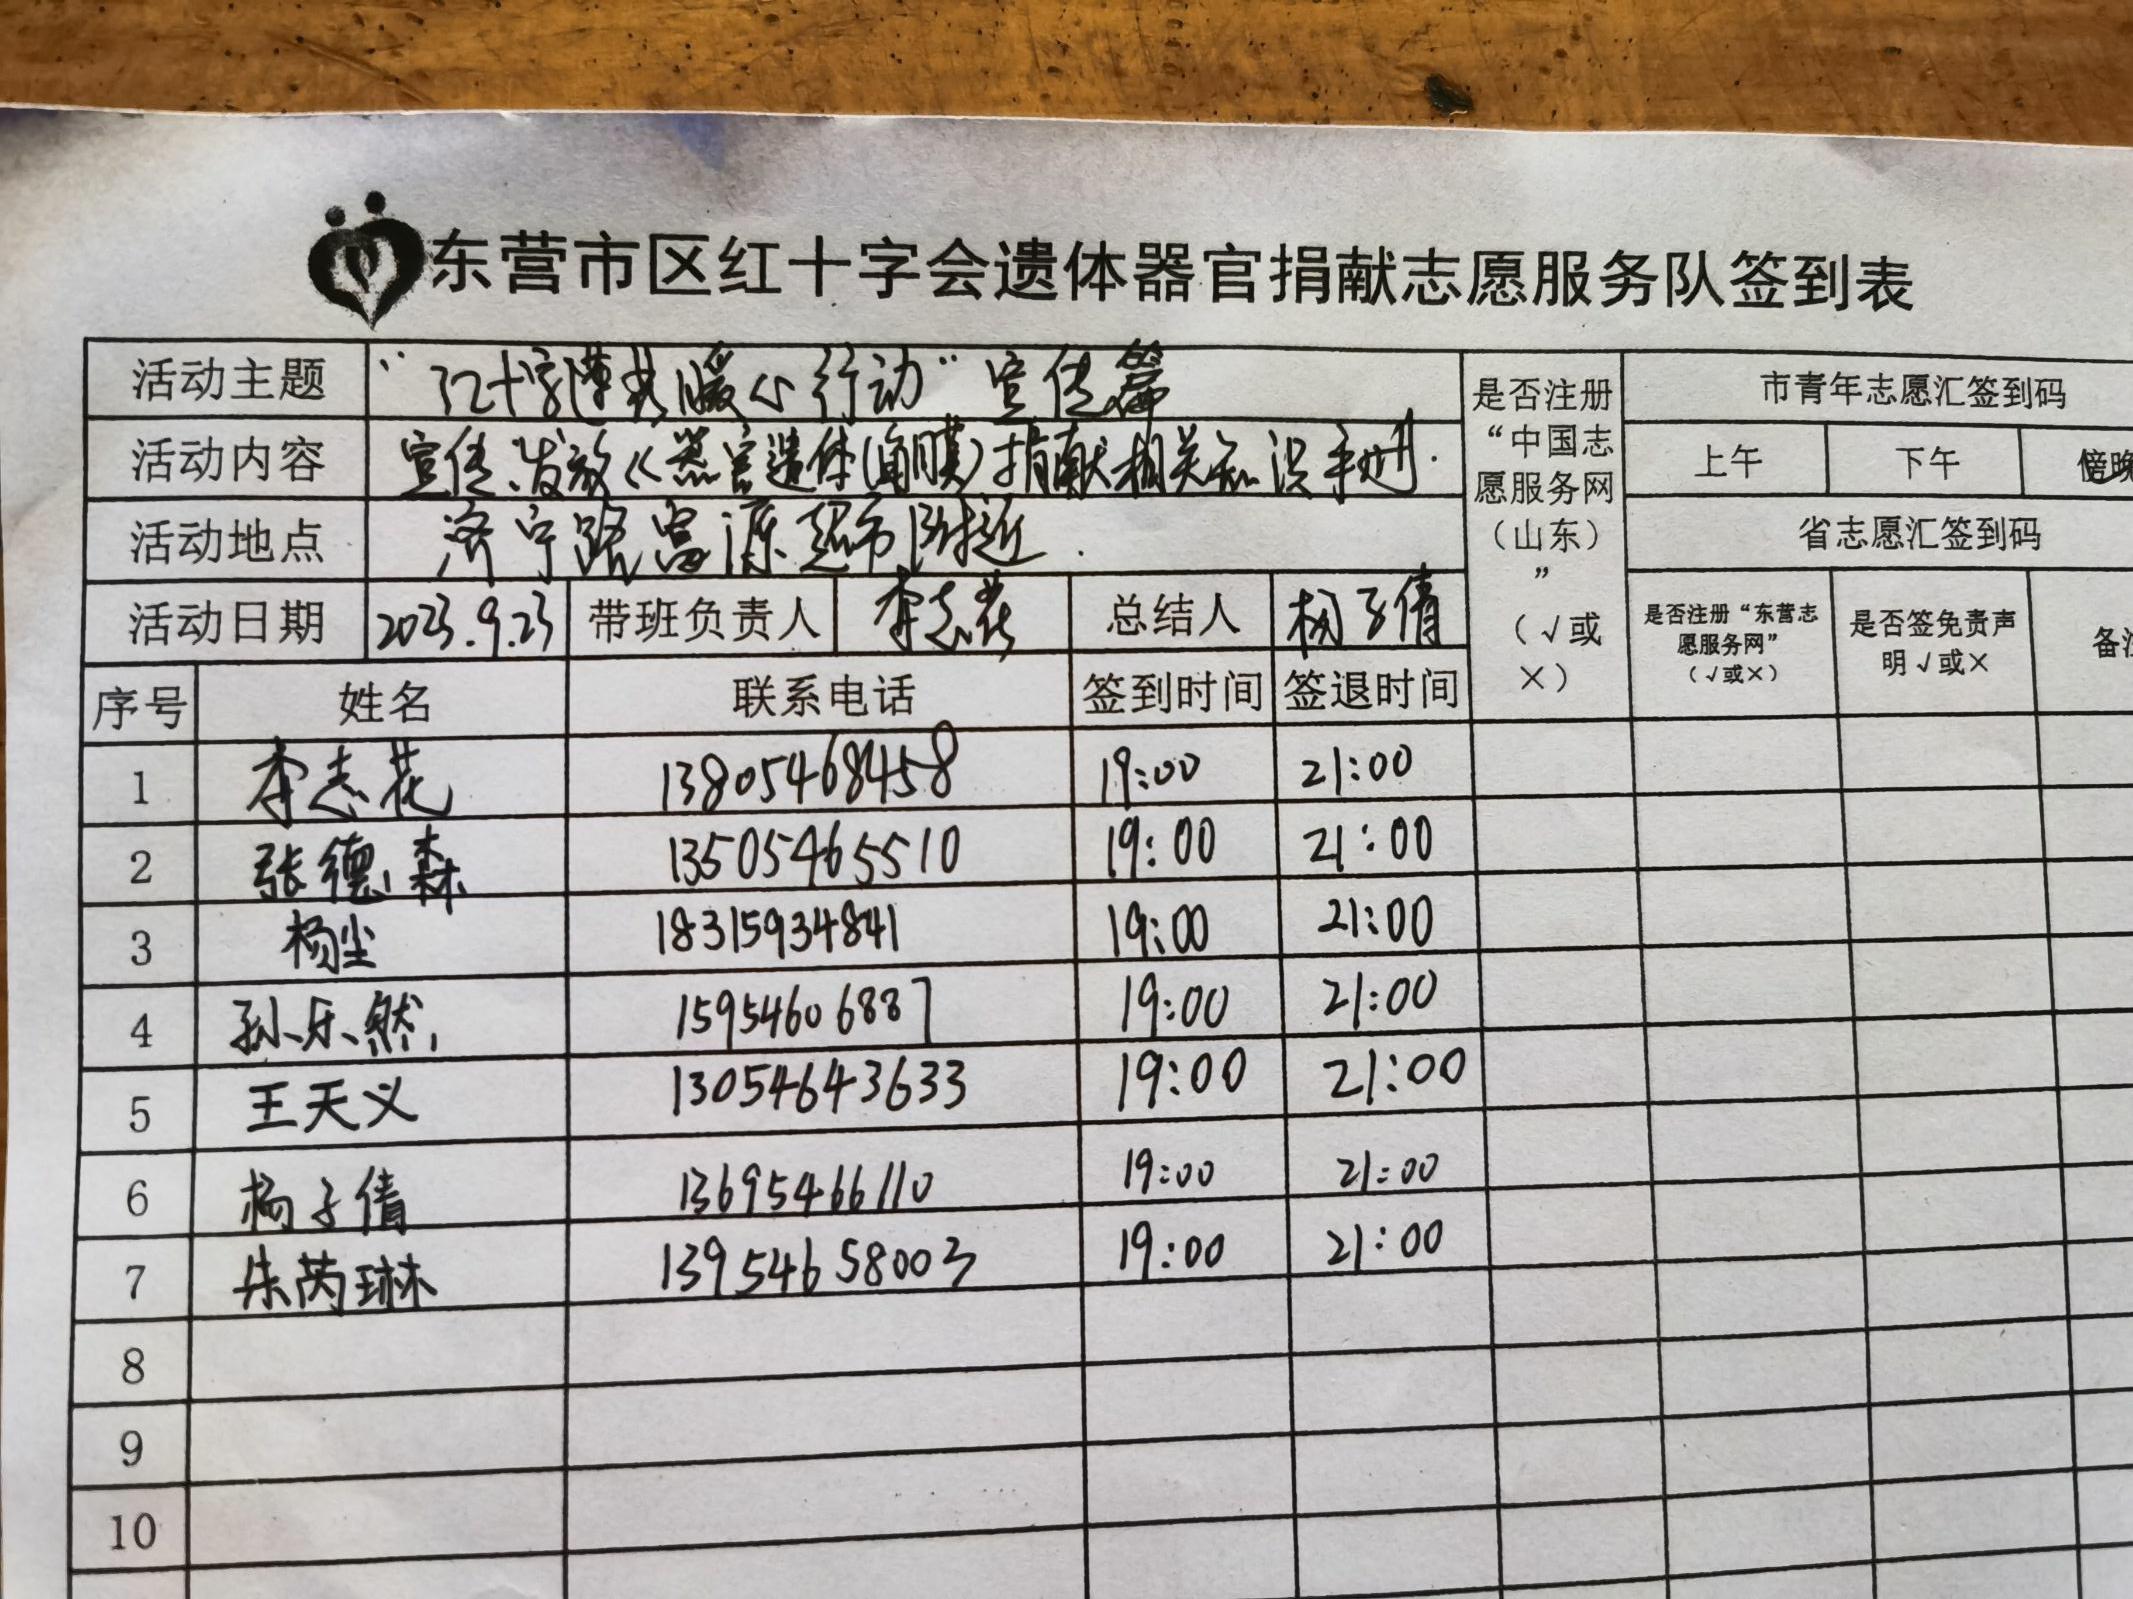 东营市区红十字会遗体器官捐献志愿服务队签到表
活动主题 “红十字博爱暖心行动”宣传篇
活动内容 宣传、发放《器官遗体(角膜)捐献相关知识手册.
活动地点 济宁路富源超市附近.
活动日期 2023.9.23 带班负责人 李志花 总结人 杨子倩
是否注册“中国志愿服务网（山东）”（√或×）
市青年志愿汇签到码
上午 下午 傍晚
省志愿汇签到码
是否注册“东营志愿服务网”（√或×） 是否签免责声明√或× 备注
序号 姓名 联系电话 签到时间 签退时间
1 李志花 13805468458 19:00 21:00
2 张德森 13505465510 19:00 21:00
3 杨尘 18315934841 19:00 21:00
4 孙乐然 15954606887 19:00 21:00
5 王天义 13054643633 19:00 21:00
6 杨子倩 13695466110 19:00 21:00
7 朱芮琳 13954658003 19:00 21:00
8
9
10